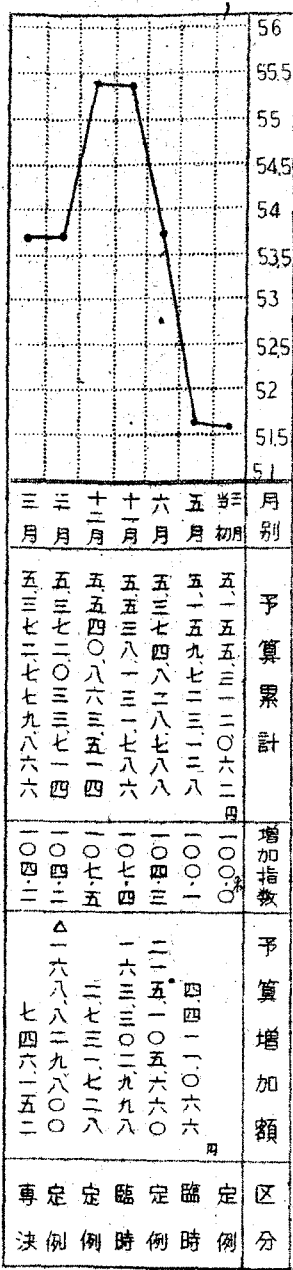 56
55.5
55
54.5
54
53.5
53
52.5
52
51.5
51
月別 予算累計 増加指数 予算増加額 区分
三月当初 五、一五五、三一二、〇六二円 一〇〇・〇% 定例
五月 五、一五九、七二三、一二八 一〇〇・一 四、四一一、〇六六円 臨時
六月 五、三七四、八二八、七八八 一〇四・三 二一五、一〇五、六六〇 定例
十一月 五、五三八、一三一、七八六 一〇七・四 一六三、三〇二、九九八 臨時
十二月 五、五四〇、八六三、五一四 一〇七・五 二、七三一、七二八 定例
二月 五、三七二、〇三三、七一四 一〇四・二 △一六八、八二九、八〇〇 定例
三月 五、三七二、七七九、八六六 一〇四・二 七四六、一五二 専決